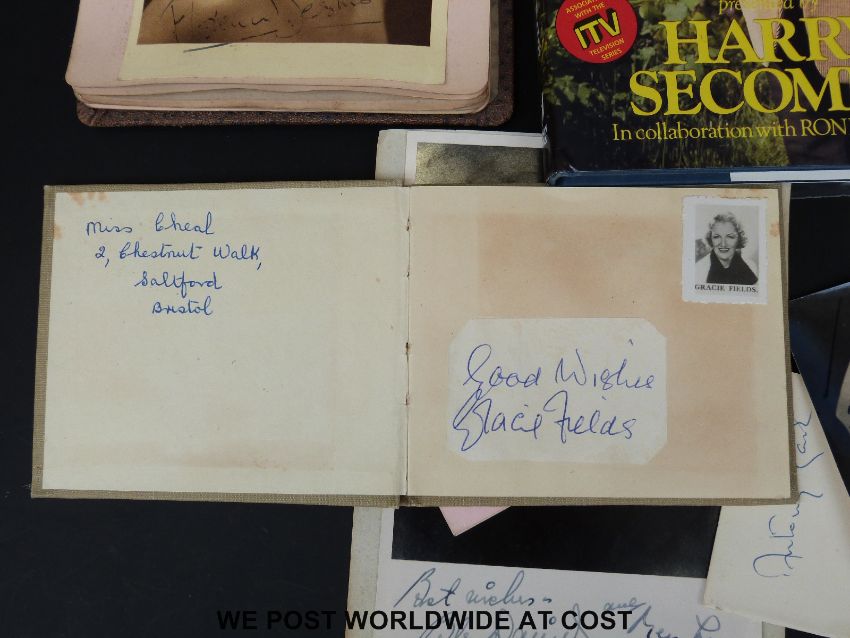 Florence Desmond
presented by
ASSOCIATED
WITH THE
ITV
TELEVISION
SERIES
HARRY
SECOM
In collaboration with RON
Miss Cheal
2, Chestnut Walk,
Saltford
Bristol
GRACIE FIELDS.
Good Wishes
Gracie Fields
Best wishes
WE POST WORLDWIDE AT COST